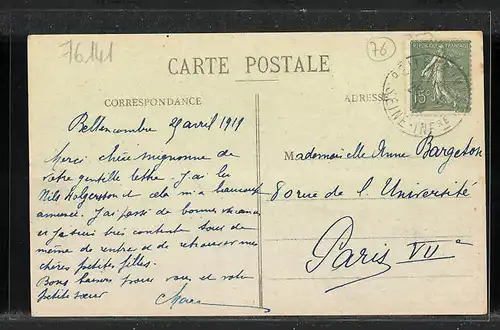 76.141
76
CARTE POSTALE
CORRESPONDANCE
ADRESSE
REPUBLIQUE FRANÇAISE
15
SEINE-INFRE
Bellencombre 29 avril 1919
Merci chère mignonne de
votre gentille lettre. J'ai lu
Nils Holgersson et cela m'a beaucoup
amusé. J'ai passé de bonnes vacances
et je suis très contente
même de rentrer et de retrouver mes
chères petites filles.
Bons baisers pour vous et votre
petite sœur
Mademoiselle Anne Bargeton
80 rue de l'Université
Paris VIIe